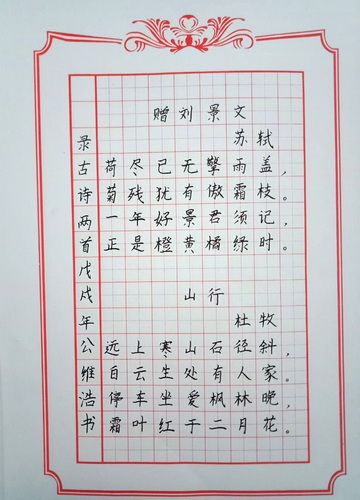 赠刘景文
苏轼
荷尽已无擎雨盖,
菊残犹有傲霜枝。
一年好景君须记,
正是橙黄橘绿时。
山行
杜牧
远上寒山石径斜,
白云生处有人家。
停车坐爱枫林晚,
霜叶红于二月花。
录古诗两首戊戌年公维浩书